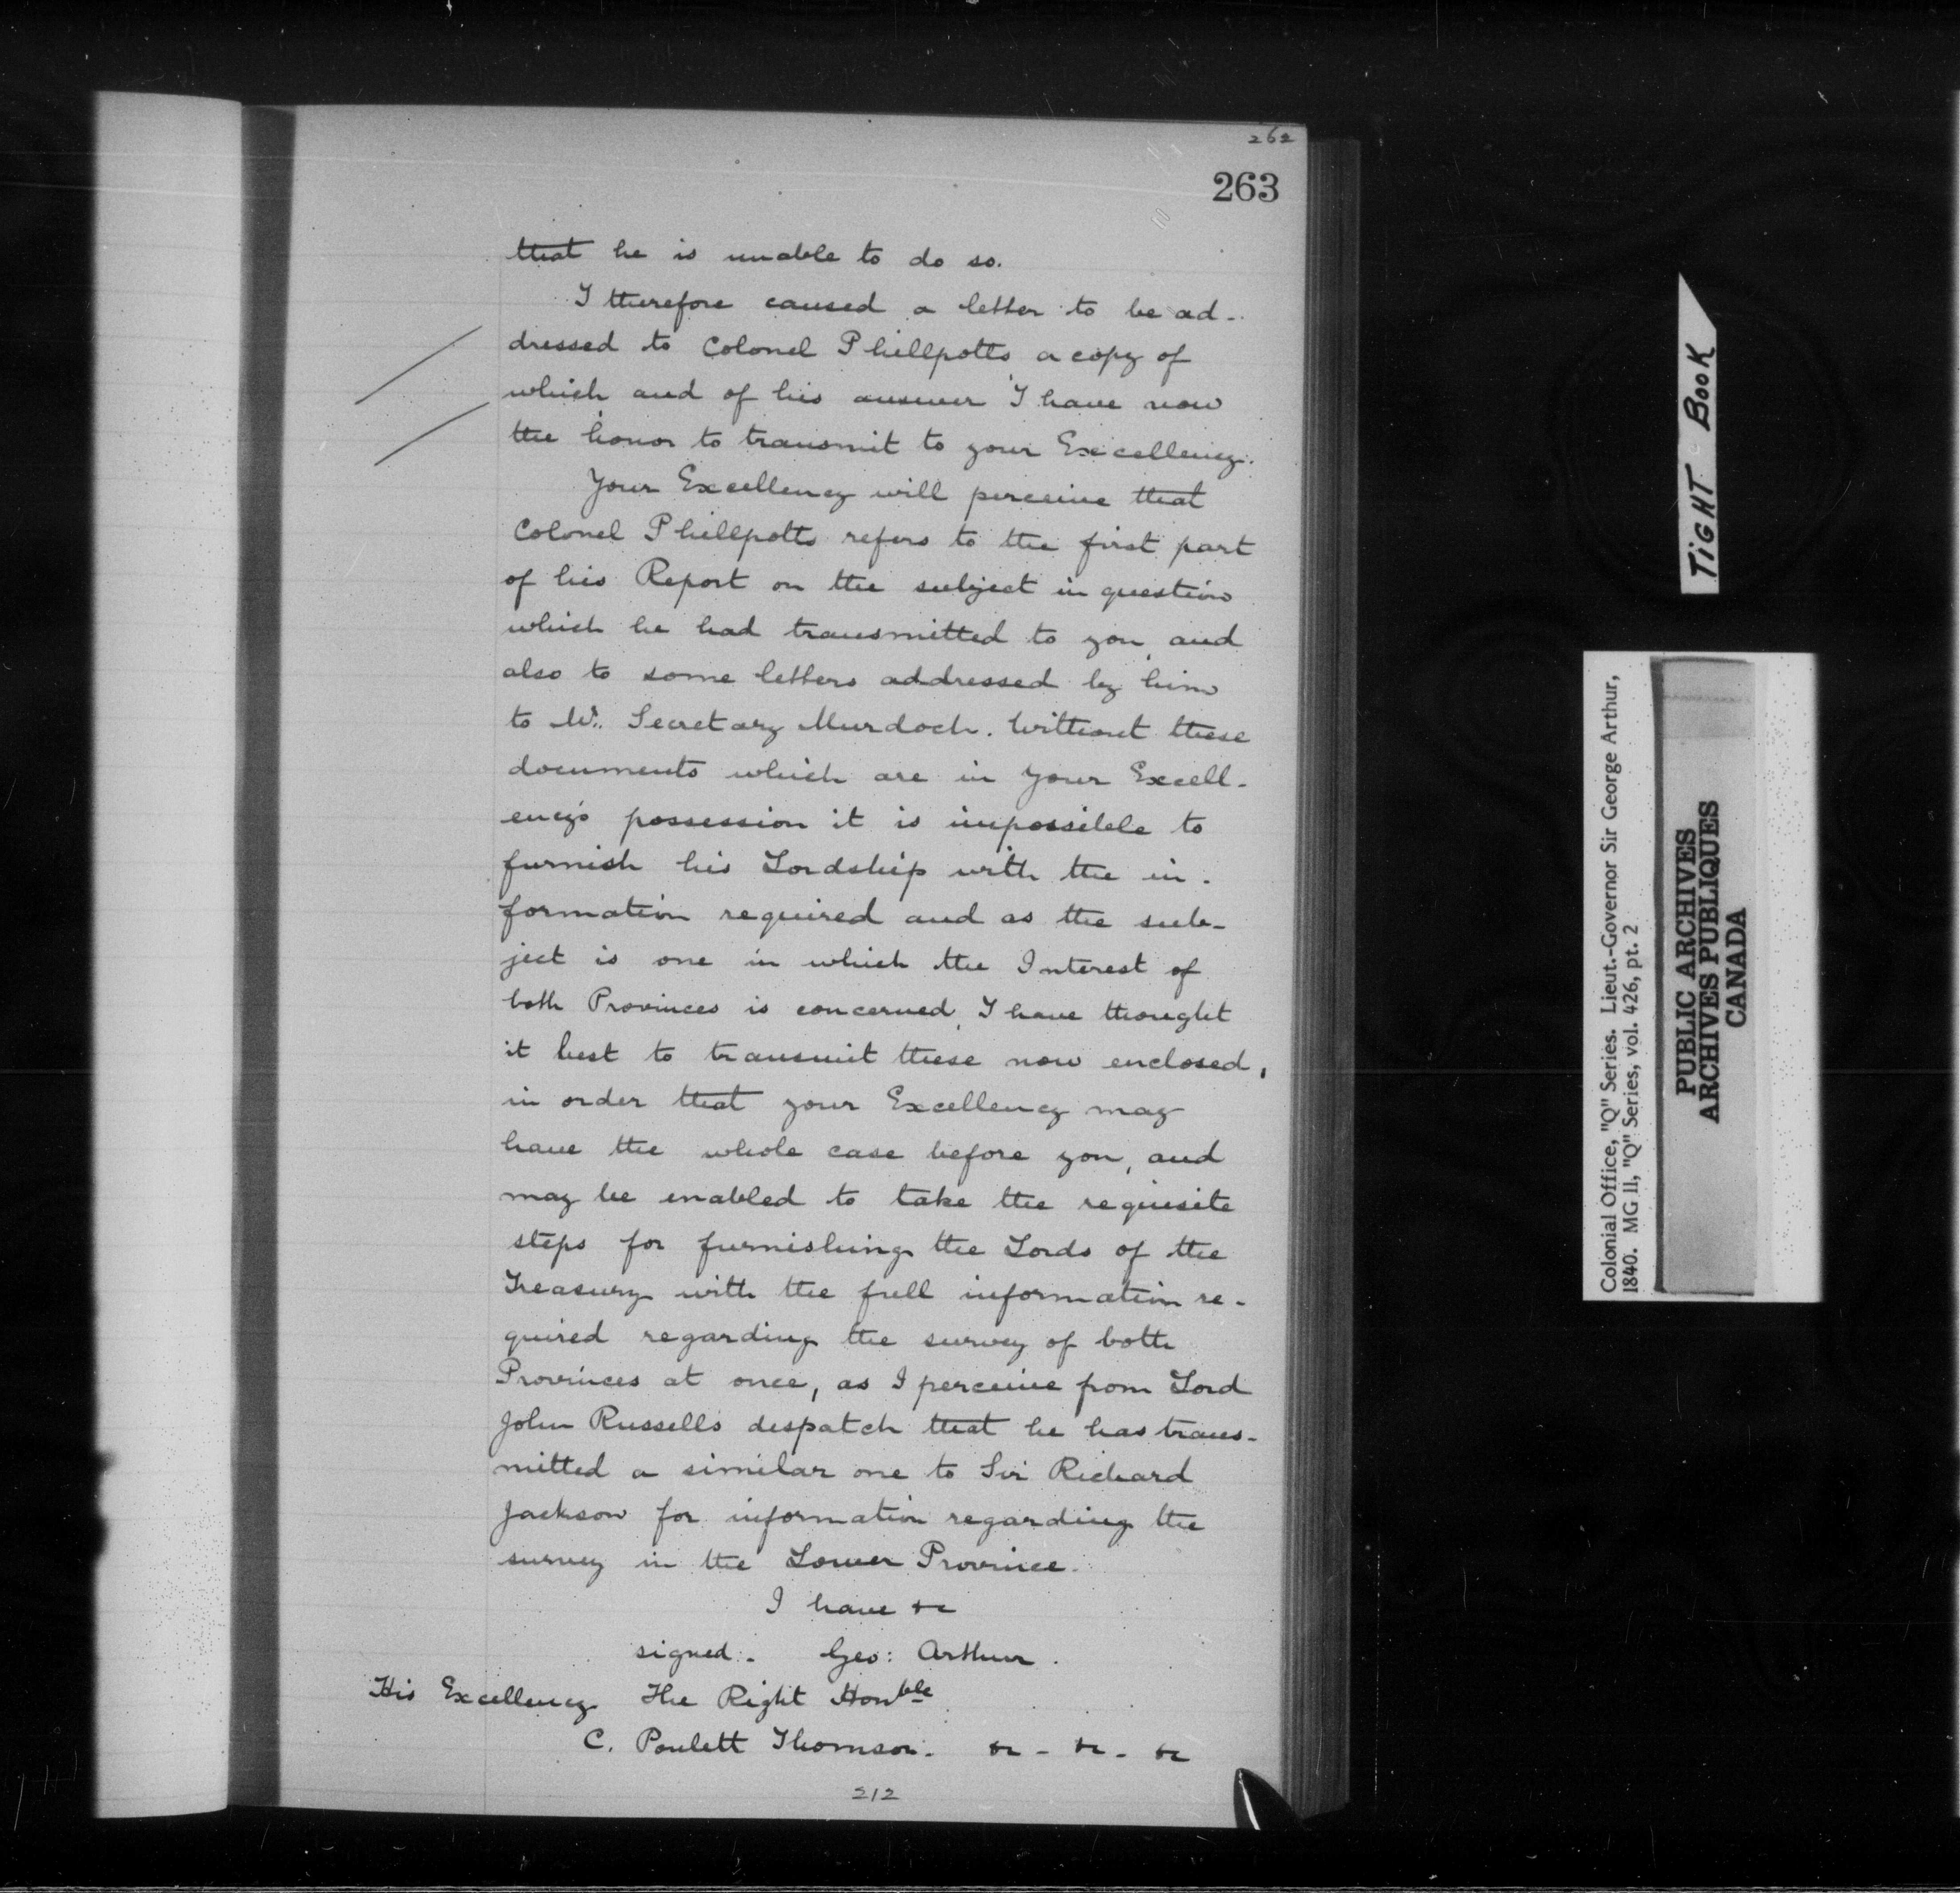 262
263
that he is unable to do so.
I therefore caused a letter to be ad-
dressed to Colonel Phillpotts a copy of
which and of his answer I have now
the honor to transmit to your Excellency.
Your Excellency will perceive that
Colonel Phillpotts refers to the first part
of his Report on the subject in question
which he had transmitted to you, and
also to some letters addressed by him
to Mr. Secretary Murdoch. Without these
documents which are in your Excell-
ency's possession it is impossible to
furnish his Lordship with the in-
formation required and as the sub-
ject is one in which the Interest of
both Provinces is concerned, I have thought
it best to transmit these now enclosed,
in order that your Excellency may
have the whole case before you, and
may be enabled to take the requisite
steps for furnishing the Lords of the
Treasury with the full information re-
quired regarding the survey of both
Provinces at once, as I perceive from Lord
John Russells despatch that he has trans-
mitted a similar one to Sir Richard
Jackson for information regarding the
survey in the Lower Province.
I have &c
signed. Geo: Arthur.
His Excellency The Right Honble
C. Poulett Thomson. &c - &c - &c
212
TIGHT BOOK
Colonial Office, "Q" Series. Lieut.-Governor Sir George Arthur,
1840. MG 11, "Q" Series, vol. 426, pt. 2
PUBLIC ARCHIVES
ARCHIVES PUBLIQUES
CANADA